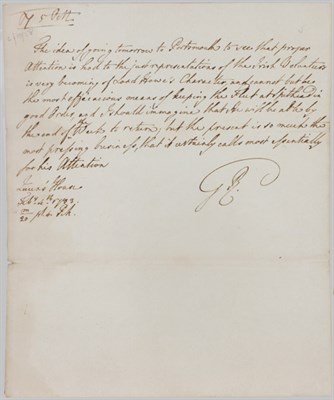 The idea of going tomorrow to Portsmouth to see that proper
Attention is had to the just representations of the Irish Volunteers
is very becoming of Lord Howe's Character, and cannot but be
the most efficacious means of keeping the Fleet at Spithead in
good Order, and I should immagine that He will be able by
the end of the Week to return; but the present is so much the
most pressing business, that it certainly calls most essentially
for his Attention
Queen's House
Feb. 4th 1793
m
20 pt. 4 P.M.
GR.